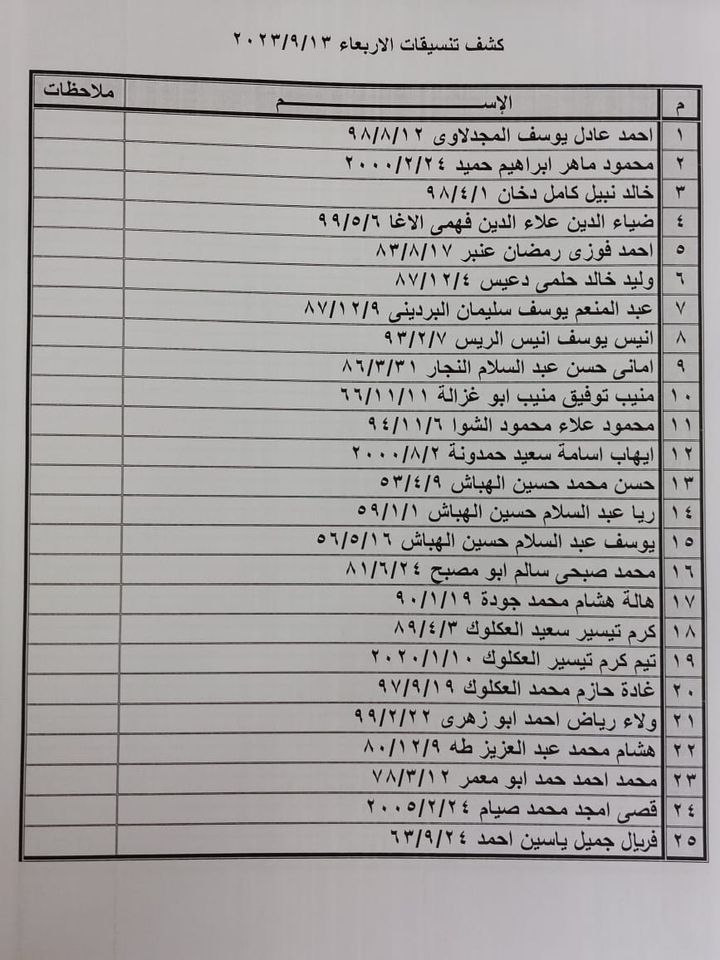 كشف تنسيقات الاربعاء ٢٠٢٣/٩/١٣
م الإســـــــم ملاحظات
١ احمد عادل يوسف المجدلاوى ٩٨/٨/١٢
٢ محمود ماهر ابراهيم حميد ٢٠٠٠/٢/٢٤
٣ خالد نبيل كامل دخان ٩٨/٤/١
٤ ضياء الدين علاء الدين فهمى الاغا ٩٩/٥/٦
٥ احمد فوزى رمضان عنبر ٨٣/٨/١٧
٦ وليد خالد حلمى دعيس ٨٧/١٢/٤
٧ عبد المنعم يوسف سليمان البردينى ٨٧/١٢/٩
٨ انيس يوسف انيس الريس ٩٣/٢/٧
٩ امانى حسن عبد السلام النجار ٨٦/٣/٣١
١٠ منيب توفيق منيب ابو غزالة ٦٦/١١/١١
١١ محمود علاء محمود الشوا ٩٤/١١/٦
١٢ ايهاب اسامة سعيد حمدونة ٢٠٠٠/٨/٢
١٣ حسن محمد حسين الهباش ٥٣/٤/٩
١٤ ريا عبد السلام حسين الهباش ٥٩/١/١
١٥ يوسف عبد السلام حسين الهباش ٥٦/٥/١٦
١٦ محمد صبحى سالم ابو مصبح ٨١/٦/٢٤
١٧ هالة هشام محمد جودة ٩٠/١/١٩
١٨ كرم تيسير سعيد العكلوك ٨٩/٤/٣
١٩ تيم كرم تيسير العكلوك ٢٠٢٠/١/١٠
٢٠ غادة حازم محمد العكلوك ٩٧/٩/١٩
٢١ ولاء رياض احمد ابو زهرى ٩٩/٢/٢٢
٢٢ هشام محمد عبد العزيز طه ٨٠/١٢/٩
٢٣ محمد احمد حمد ابو معمر ٧٨/٣/١٢
٢٤ قصى امجد محمد صيام ٢٠٠٥/٢/٢٤
٢٥ فريال جميل ياسين احمد ٦٣/٩/٢٤